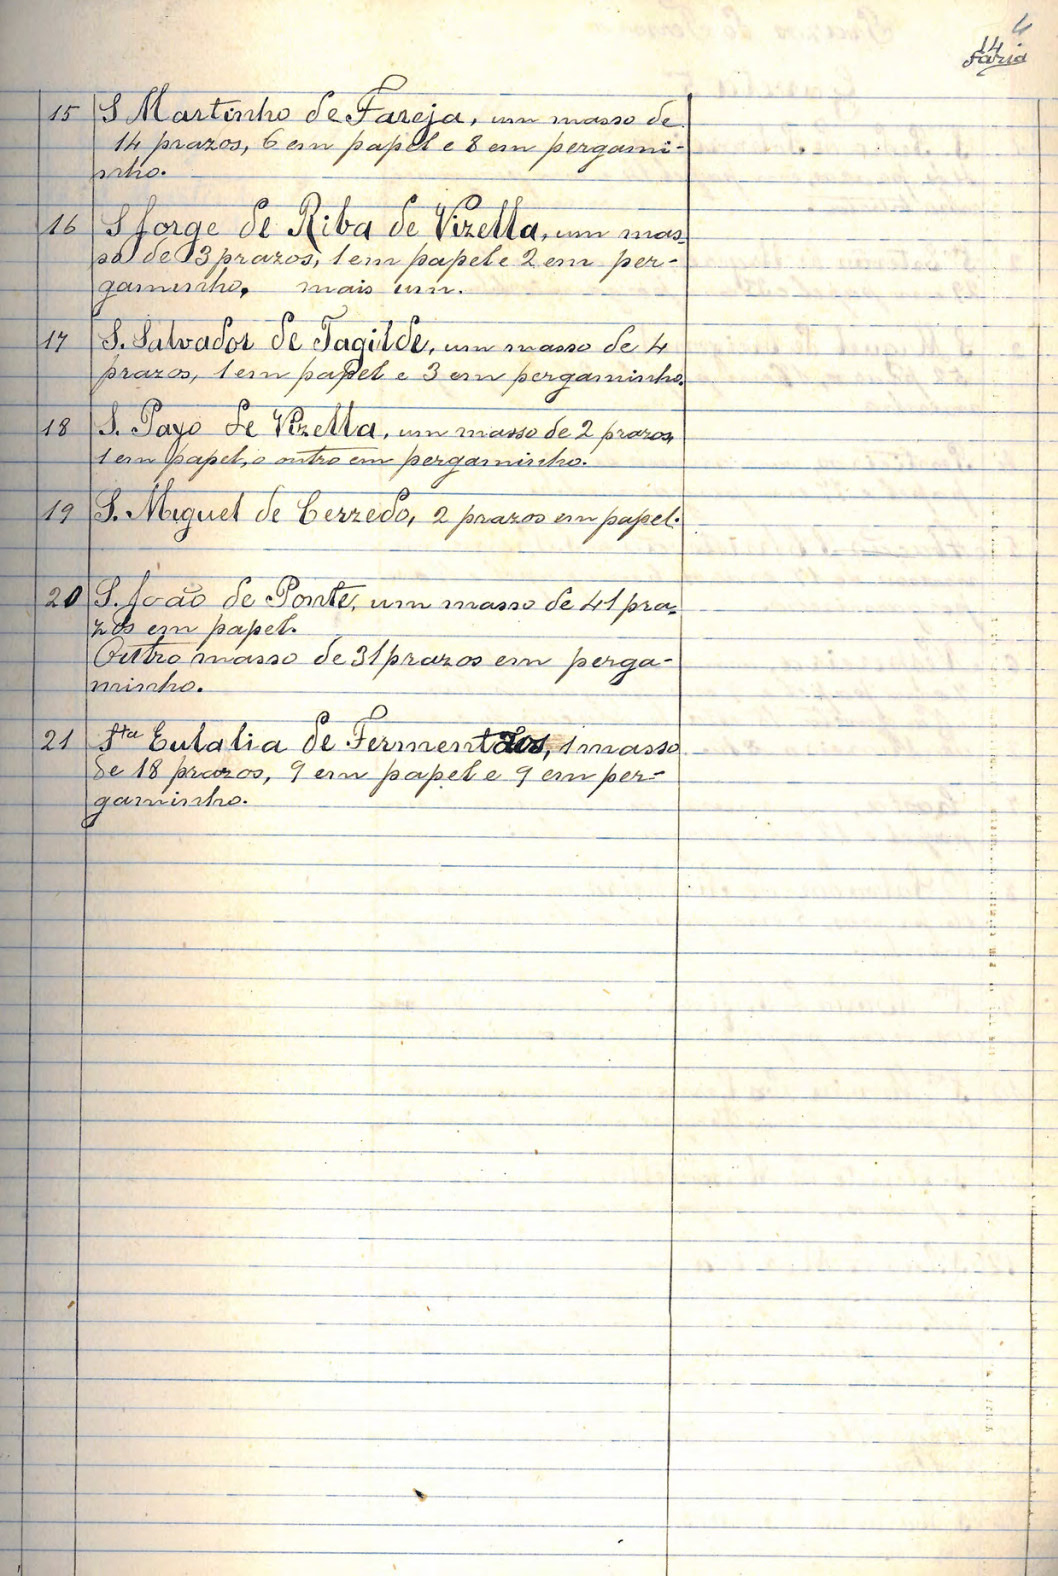 4
14
Faria
15 S Martinho de Fareja, um masso de
14 prazos, 6 em papel e 8 em pergami-
nho.
16 S Jorge de Riba de Vizella, um mas-
so de 3 prazos, 1 em papel e 2 em per-
gaminho, mais um.
17 S. Salvador de Tagilde, um masso de 4
prazos, 1 em papel e 3 em pergaminho.
18 S. Payo de Vizella, um masso de 2 prazos,
1 em papel, o outro em pergaminho.
19 S. Miguel de Cerzedo, 2 prazos em papel.
20 S. João de Ponte, um masso de 41 pra-
zos em papel.
Outro masso de 31 prazos em perga-
minho.
21 Sta Eulalia de Fermentões, 1 masso
de 18 prazos, 9 em papel e 9 em per-
gaminho.